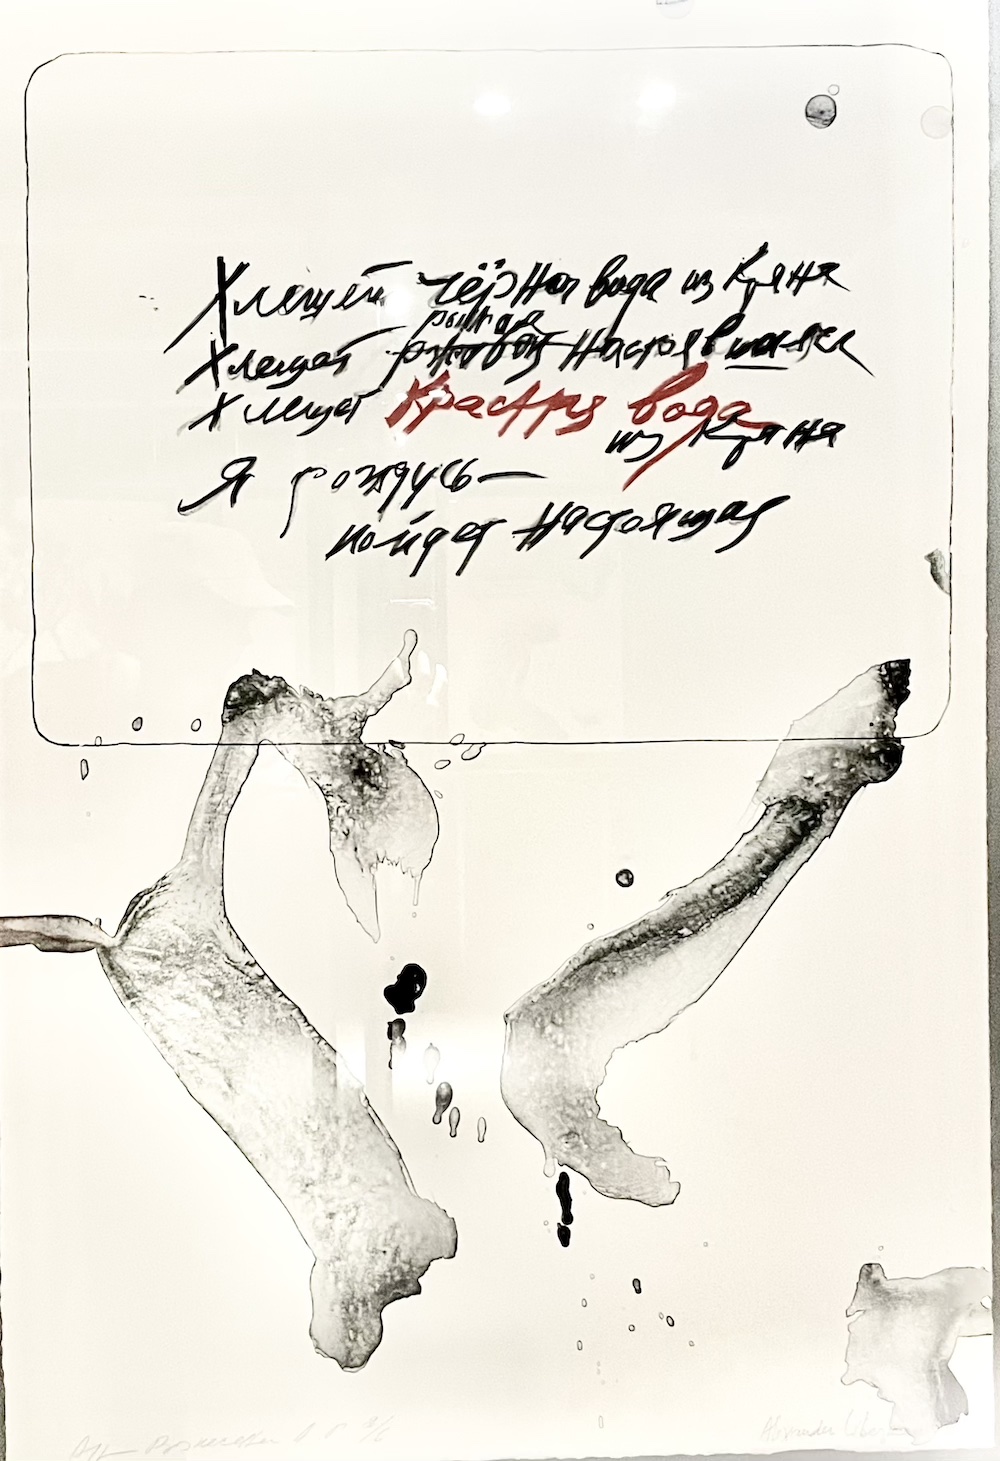 Хлещет чёрная вода из крана
рыжая
Хлещет ржавая настоявшаяся
Хлещет Красная вода
из крана
Я дождусь —
пойдет настоящая